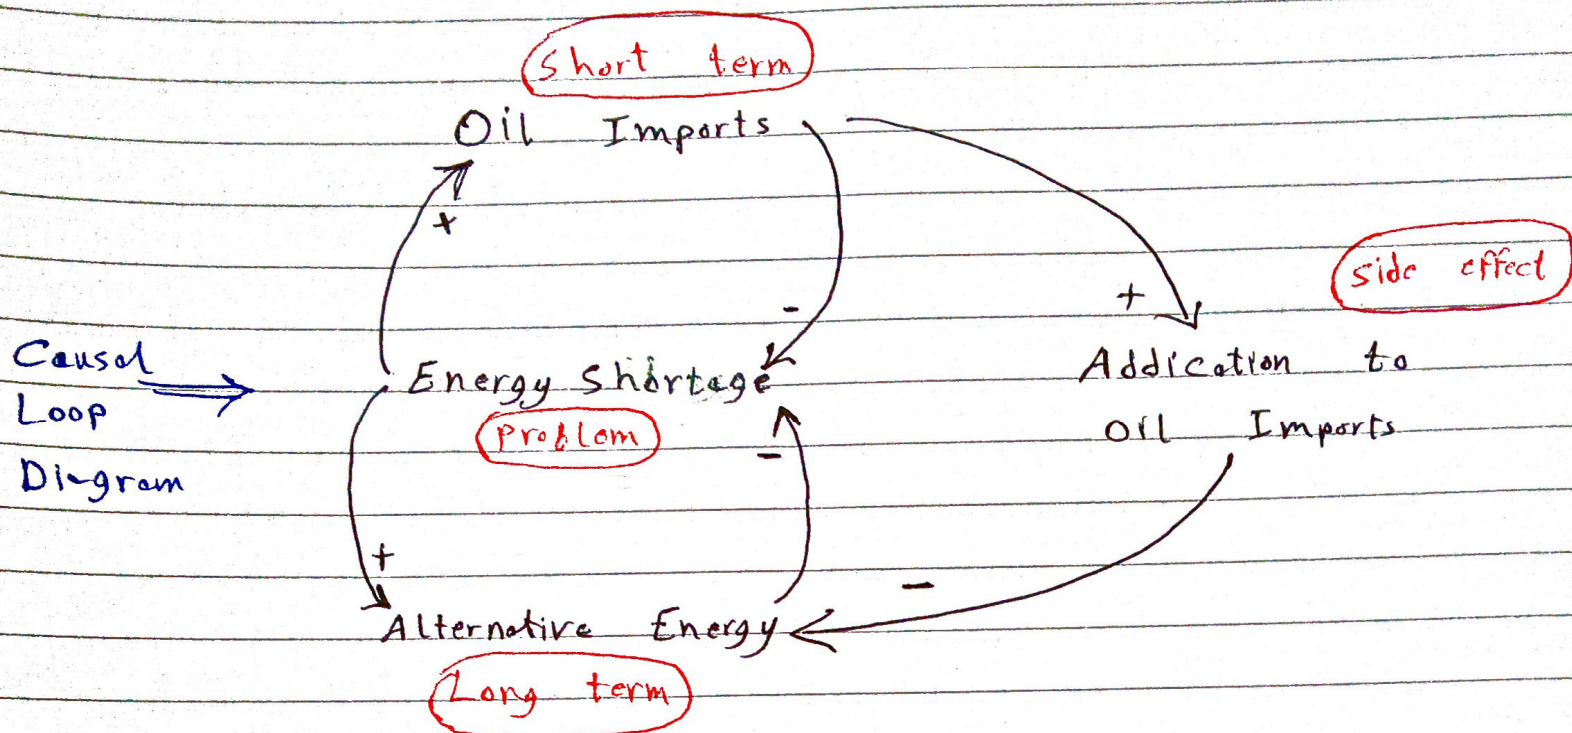 Short term
Oil Imports
+
-
+
side effect
Causal
Loop
Diagram
Energy Shortage
Addication to
Oil Imports
problem
-
+
-
Alternative Energy
Long term